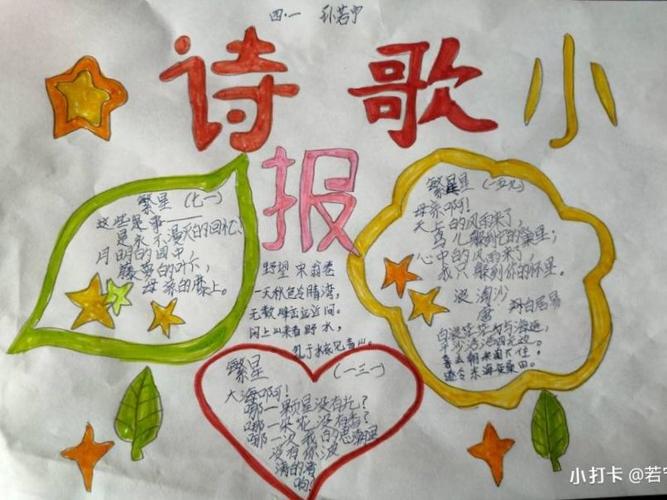 四·一 孙若宁
诗歌小
报
繁星(七一)
这些是事——
是永不漫灭的回忆;
月明的园中
藤萝的叶下,
母亲的膝上。
繁星(一五九)
母亲啊!
天上的风雨来了,
鸟儿躲到它的巢里;
心中的风雨来了,
我只躲到你的怀里。
浪淘沙
唐 白居易
白浪茫茫与海连,
平沙浩浩四无边。
暮去朝来淘不住,
遂令东海变桑田。
野望 宋 翁卷
一天秋色冷晴湾,
无数峰峦远近间。
闲上山来看野水,
繁星(一三一)
大海啊!
哪一颗星没有光?
哪一朵花没有香?
哪一次我的思潮里
没有你波
涛的清
响?
小打卡 @若宁